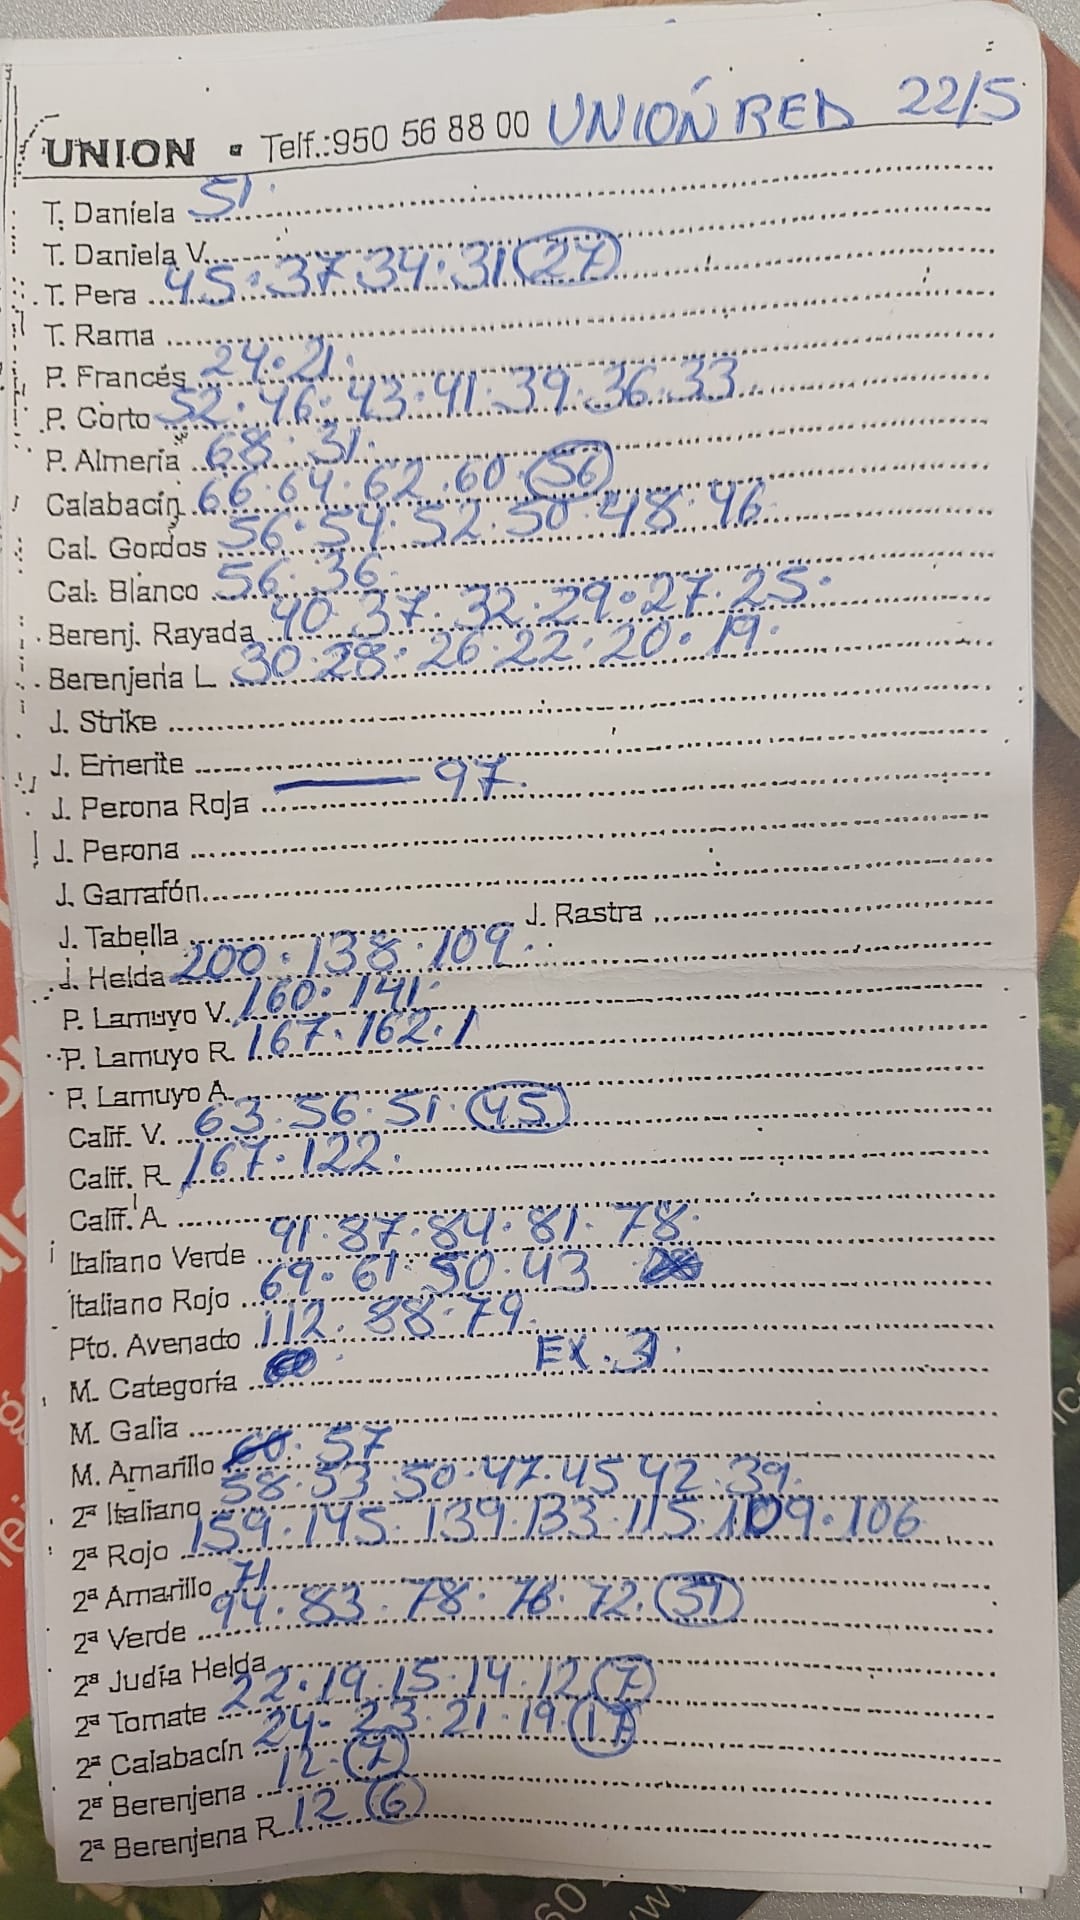 UNION - Telf.:950 56 88 00 UNIÓN RED 22/5
T. Daniela 51.
T. Daniela V.
T. Pera 45.37.34.31 (27)
T. Rama
P. Francés 24.21.
P. Corto 52.46.43.41.39.36.33.
P. Almería 68.31.
Calabacín 66.64.62.60.(56)
Cal. Gordos 56.54.52.50.48.46
Cal. Blanco 56.36.
Berenj. Rayada 40.37.32.29.27.25.
Berenjena L 30.28.26.22.20.19.
J. Strike
J. Emerite
J. Perona Roja — 97.
J. Perona
J. Garrafón
J. Tabella J. Rastra
J. Helda 200.138.109.
P. Lamuyo V. 160.141.
P. Lamuyo R. 167.162.1
P. Lamuyo A.
Calif. V. 63.56.51.(45)
Calif. R 167.122.
Calif. A
Italiano Verde 91.87.84.81.78.
Italiano Rojo 69.61.50.43
Pto. Avenado 112.88.79.
M. Categoría EX.31.
M. Galia
M. Amarillo 57
2ª Italiano 58.53.50.47.45.42.39.
2ª Rojo 159.145.139.133.115.109.106
2ª Amarillo 71
2ª Verde 94.83.78.76.72.(51)
2ª Judía Helda
2ª Tomate 22.19.15.14.12 (7)
2ª Calabacín 24.23.21.19.(17)
2ª Berenjena 12.(7)
2ª Berenjena R 12 (6)